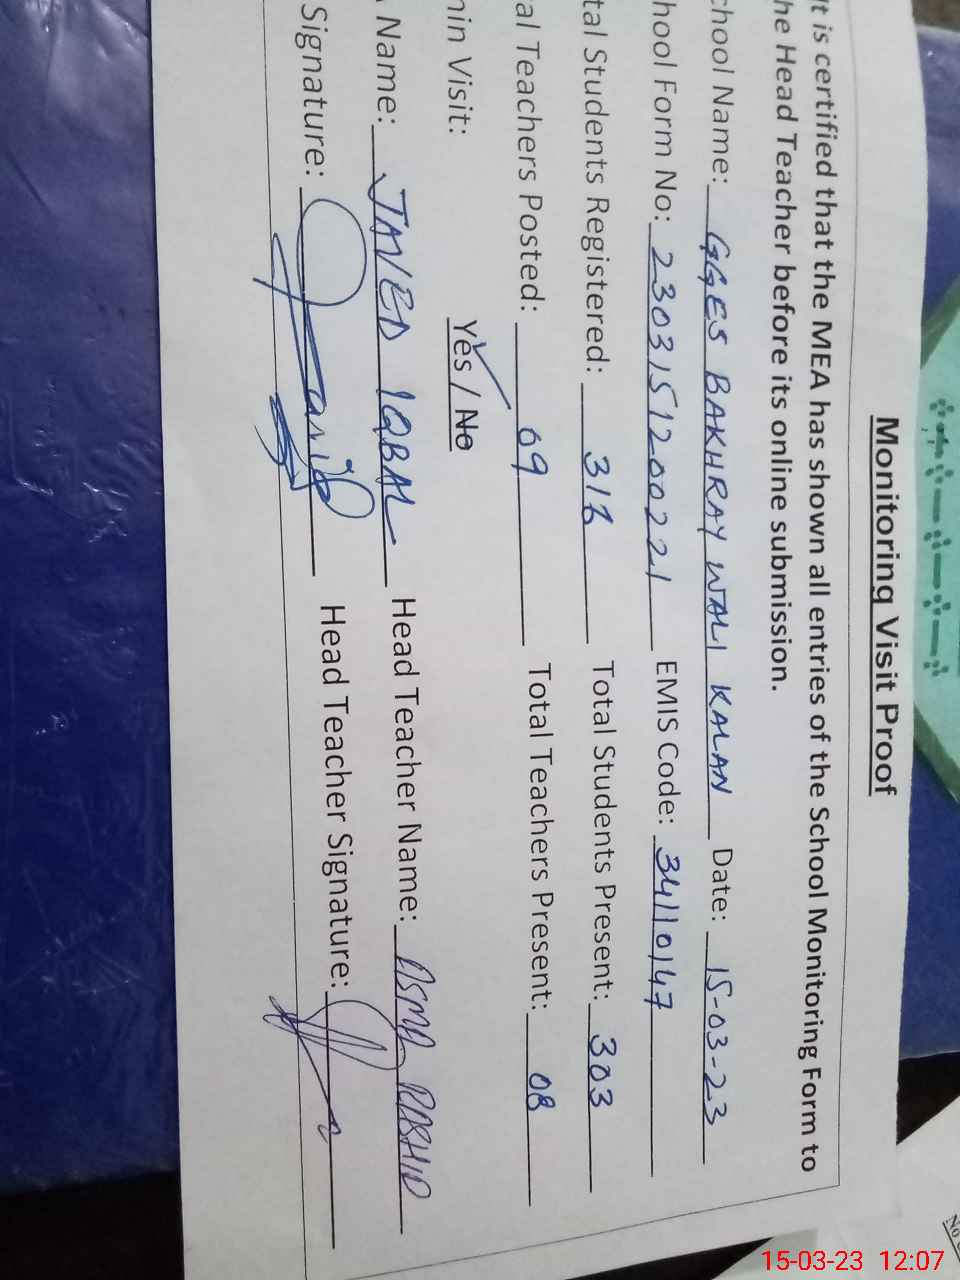 Monitoring Visit Proof
It is certified that the MEA has shown all entries of the School Monitoring Form to
he Head Teacher before its online submission.
chool Name: GGES BAKHRAY WALI KALAN Date: 15-03-23
hool Form No: 2303151200221 EMIS Code: 34110147
tal Students Registered: 316 Total Students Present: 303
al Teachers Posted: 09 Total Teachers Present: 08
nin Visit: Yes / No
Name: JAVED IQBAL Head Teacher Name: ASMA RASHID
Signature: Head Teacher Signature:
15-03-23 12:07